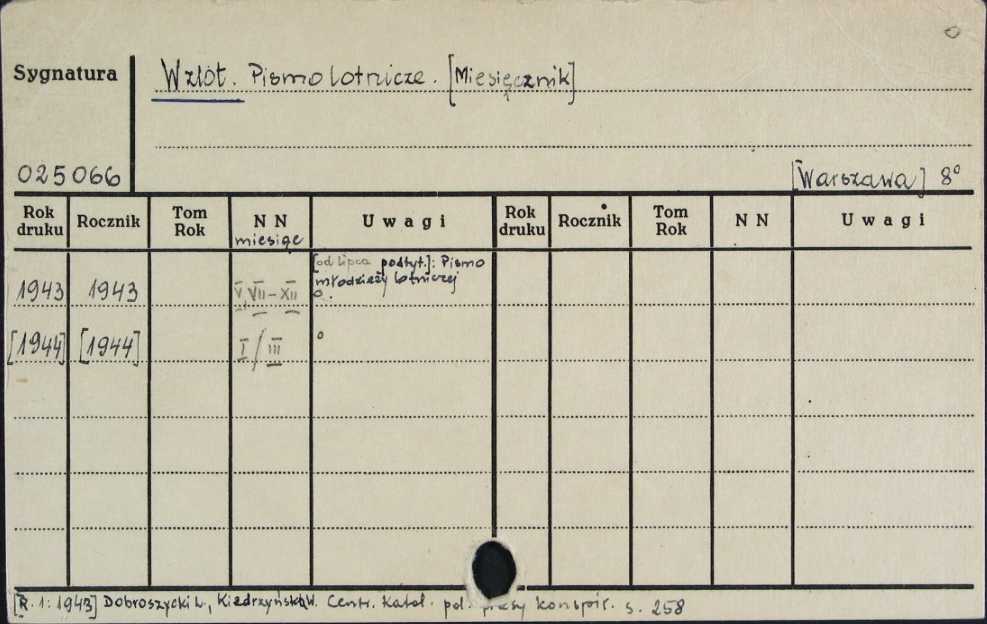 Sygnatura
Wzlot. Pismo lotnicze. [Miesięcznik]
025066
[Warszawa] 8°
Rok druku Rocznik Tom Rok N N miesiąc Uwagi Rok druku Rocznik Tom Rok N N Uwagi
[od lipca podtyt.]: Pismo
młodzieży lotniczej
1943 1943 V, VII-XII o
[1944] [1944] I/III o
[R. 1: 1943] Dobroszycki L., Kiedrzyńska W. Centr. Katal. pol. prasy konspir. s. 258